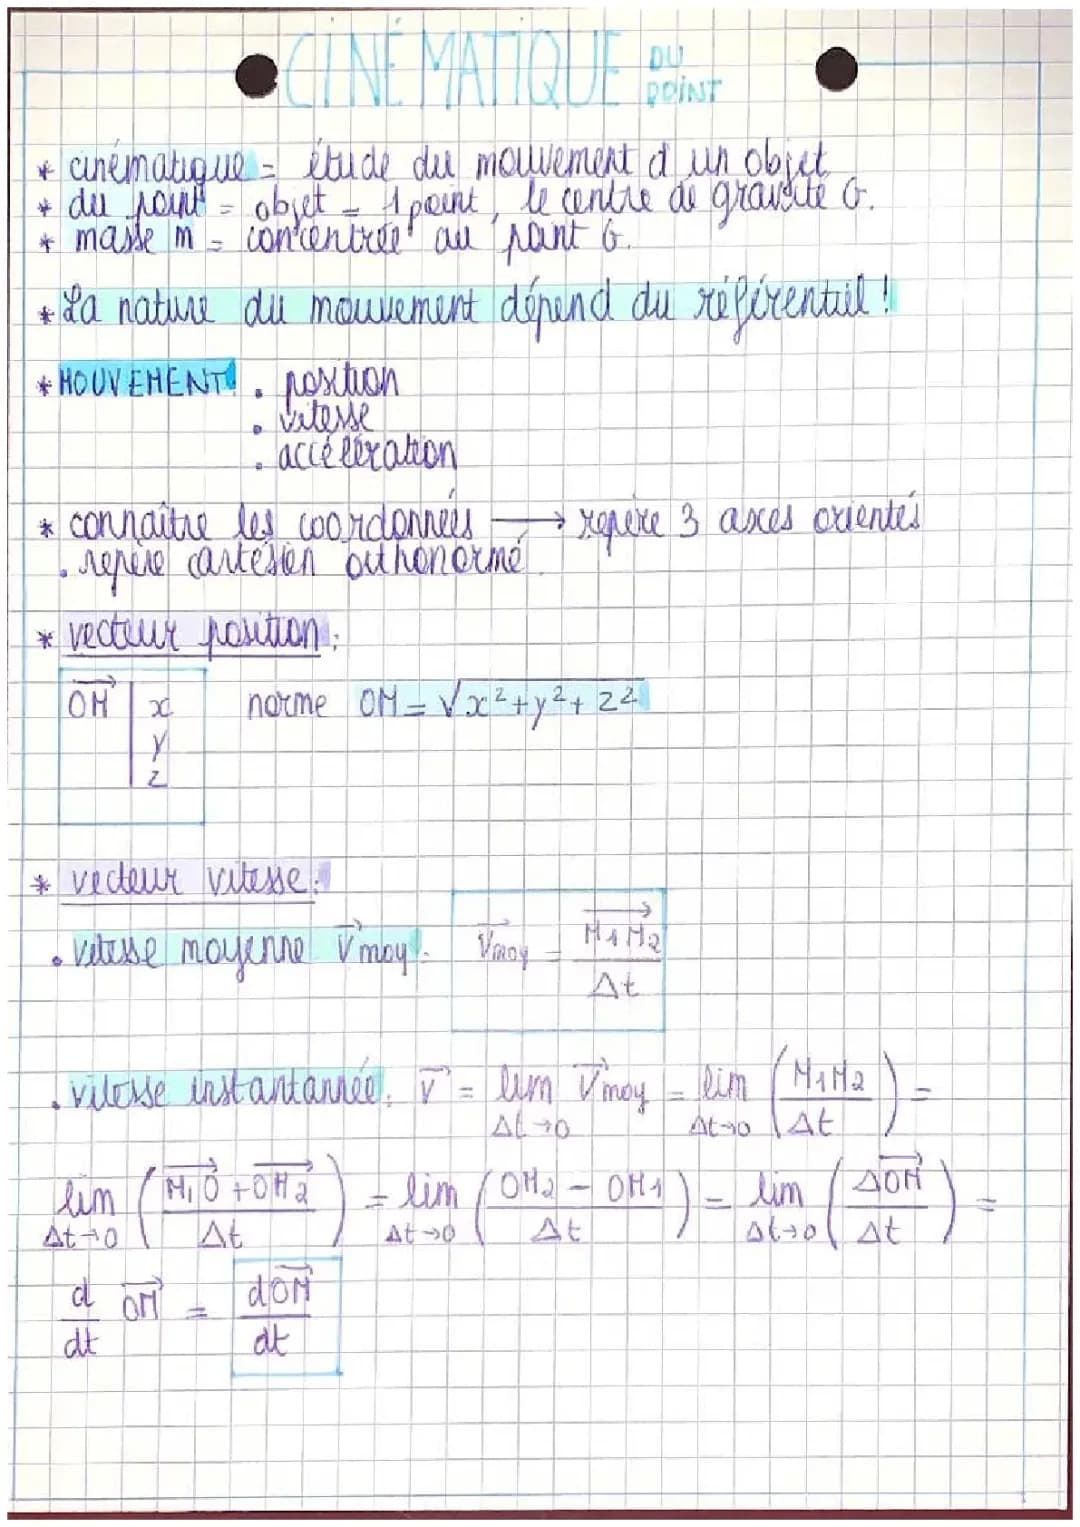 CINÉMATIQUE DU POINT
* cinématique = étude du mouvement d'un objet
* du point = objet = 1 point, le centre de gravité G.
* masse m = concentrée au point G.
* La nature du mouvement dépend du référentiel !
* MOUVEMENT: . position
. vitesse
. accélération
* connaître les coordonnées → repère 3 axes orientés
. repère cartésien orthonormé.
* vecteur position:
OM⃗ | x norme OM = √x²+y²+z²
y
z
* vecteur vitesse:
. vitesse moyenne V⃗moy: V⃗moy = M₁M₂⃗ / Δt
. vitesse instantannée: V⃗ = lim Δt→0 V⃗moy = lim Δt→0 (M₁M₂ / Δt) =
lim Δt→0 (M₁O⃗ + OM₂⃗ / Δt) = lim Δt→0 (OM₂ - OM₁ / Δt) = lim Δt→0 (ΔOM⃗ / Δt) =
d/dt OM⃗ = dOM⃗ / dt